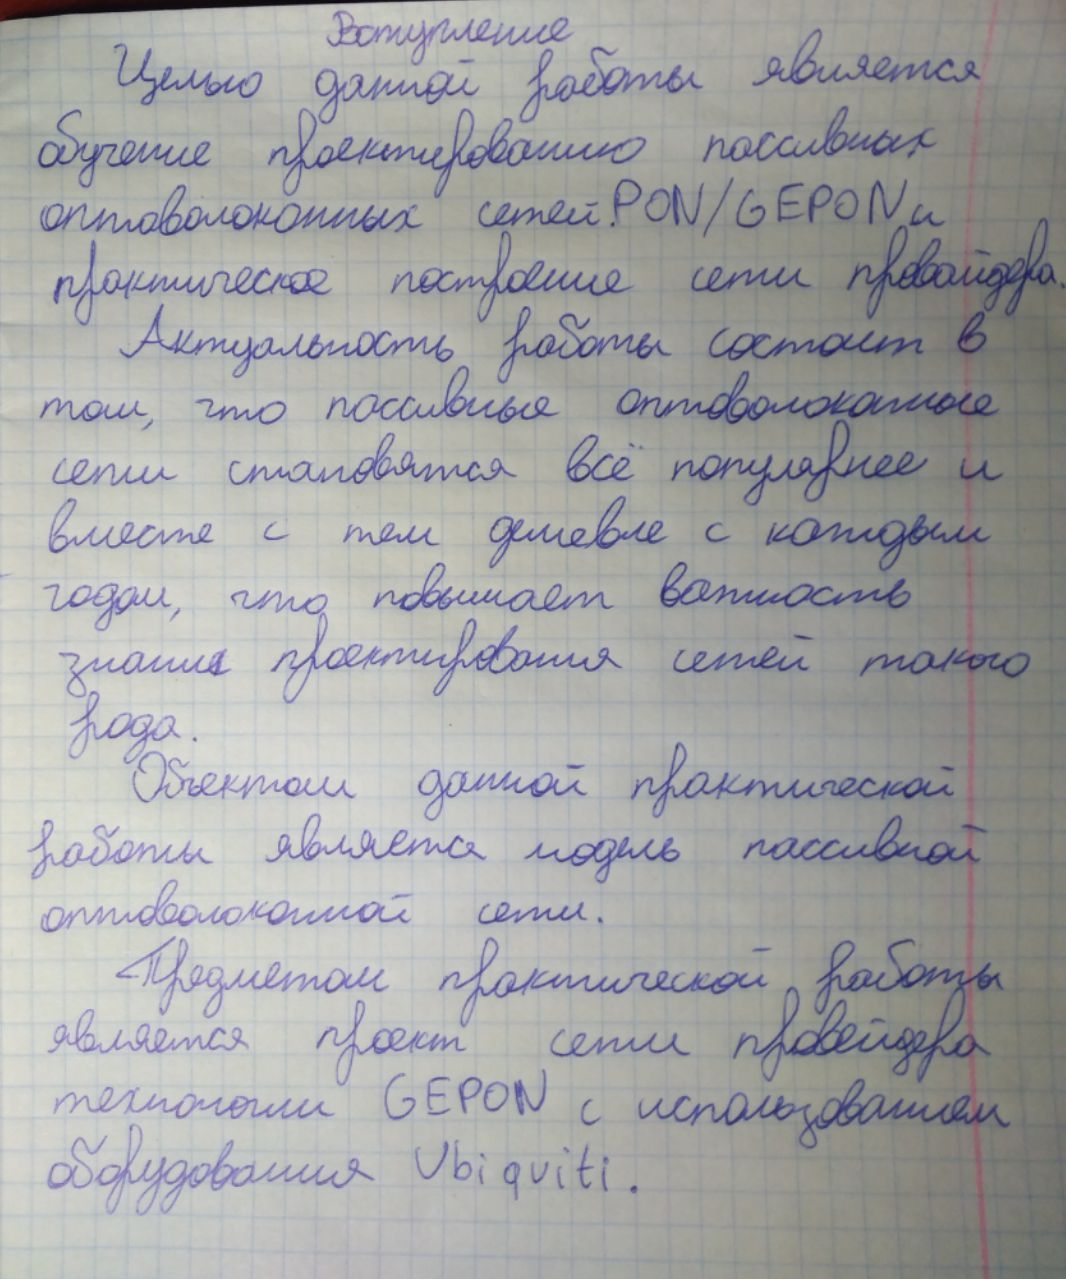 Вступление
Целью данной работы является
обучение проектированию пассивных
оптоволоконных сетей PON/GEPON и
практическое построение сети провайдера.
Актуальность работы состоит в
том, что пассивные оптоволоконные
сети становятся всё популярнее и
вместе с тем дешевле с каждым
годом, что повышает важность
знания проектирования сетей такого
рода.
Объектом данной практической
работы является модель пассивной
оптоволоконной сети.
Предметом практической работы
является проект сети провейдера
технологии GEPON с использованием
оборудования Ubiquiti.